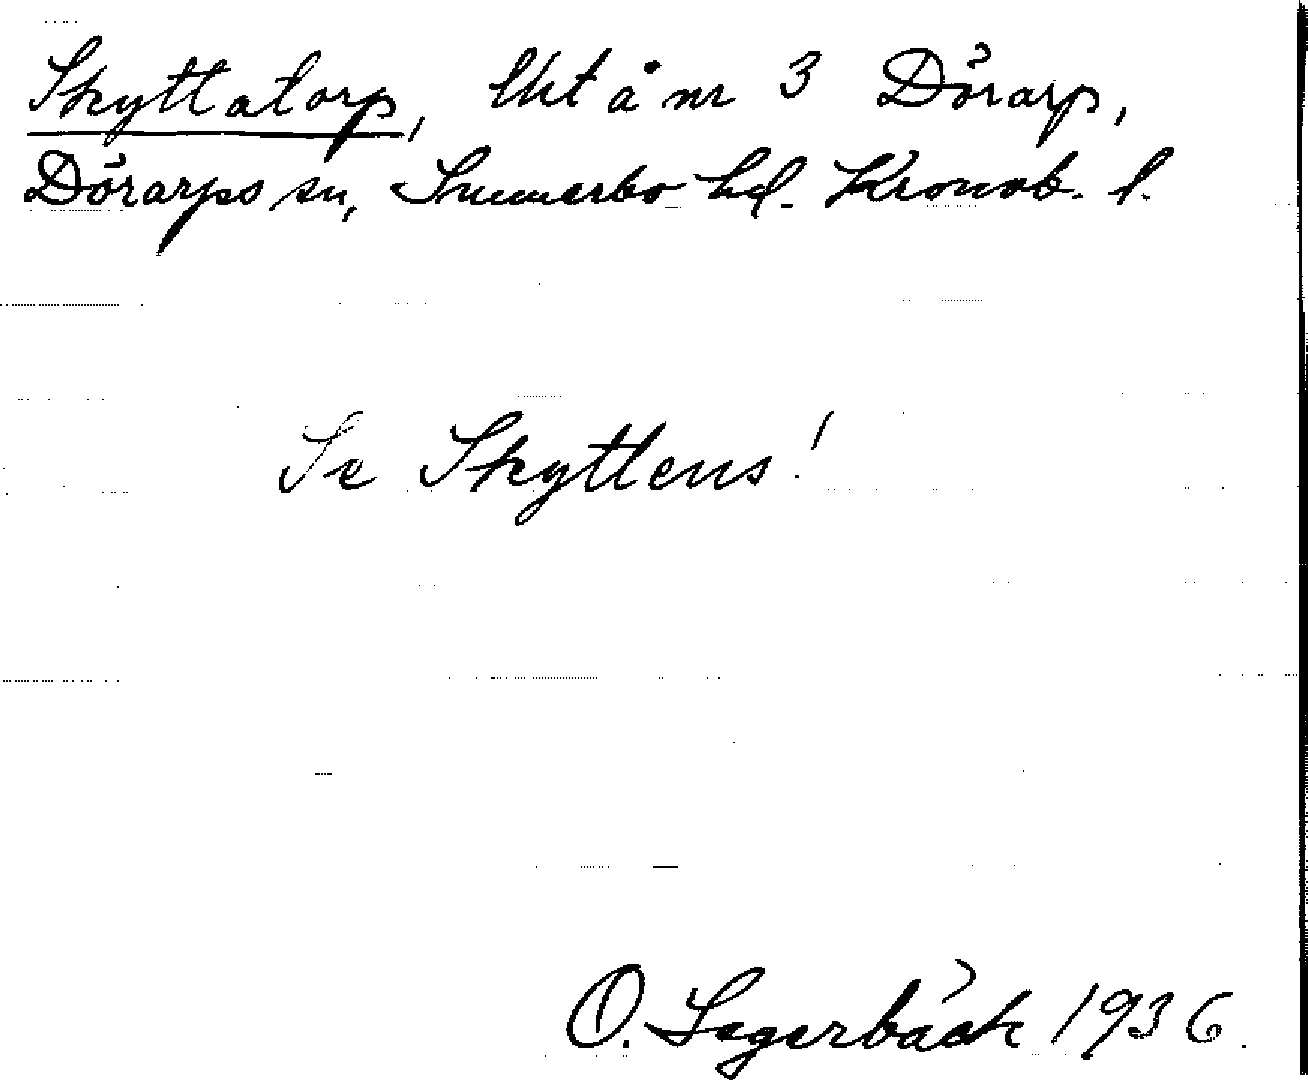 Skyttatorp, lht å nr 3 Dörarp,
Dörarps sn, Sunnerbo hd. Kronob. l.
Se Skyttens!
O. Lagerbäck 1936.